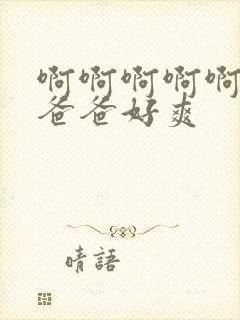 啊啊啊啊啊
爸爸好爽
晴語